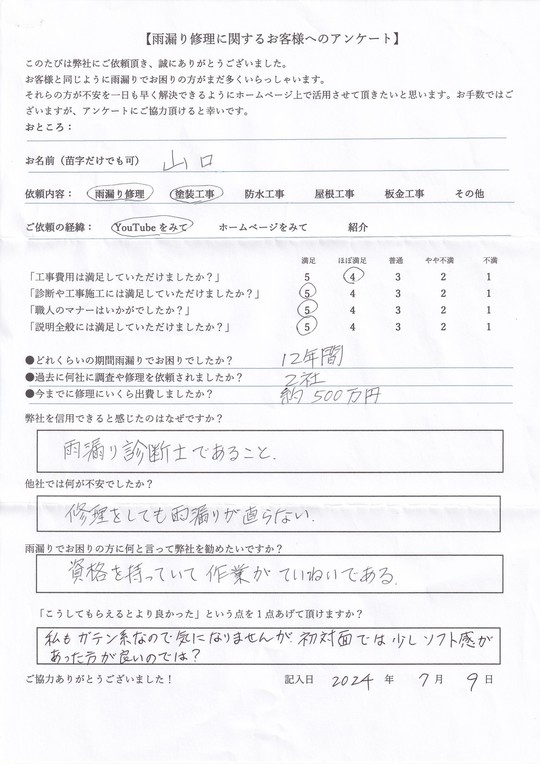 【雨漏り修理に関するお客様へのアンケート】
このたびは弊社にご依頼頂き、誠にありがとうございました。
お客様と同じように雨漏りでお困りの方がまだ多くいらっしゃいます。
それらの方が不安を一日も早く解決できるようにホームページ上で活用させて頂きたいと思います。お手数ではご
ざいますが、アンケートにご協力頂けると幸いです。
おところ：
お名前（苗字だけでも可） 山口
依頼内容： 雨漏り修理 塗装工事 防水工事 屋根工事 板金工事 その他
ご依頼の経緯： YouTubeをみて ホームページをみて 紹介
満足 ほぼ満足 普通 やや不満 不満
「工事費用は満足していただけましたか？」 5 4 3 2 1
「診断や工事施工には満足していただけましたか？」 5 4 3 2 1
「職人のマナーはいかがでしたか？」 5 4 3 2 1
「説明全般には満足していただけましたか？」 5 4 3 2 1
●どれくらいの期間雨漏りでお困りでしたか？ 12年間
●過去に何社に調査や修理を依頼されましたか？ 2社
●今までに修理にいくら出費しましたか？ 約500万円
弊社を信用できると感じたのはなぜですか？
雨漏り診断士であること.
他社では何が不安でしたか？
修理をしても雨漏りが直らない.
雨漏りでお困りの方に何と言って弊社を勧めたいですか？
資格を持っていて作業がていねいである.
「こうしてもらえるとより良かった」という点を１点あげて頂けますか？
私もガテン系なので気になりませんが 初対面では少しソフト感が
あった方が良いのでは？
ご協力ありがとうございました！ 記入日 2024 年 7 月 9 日